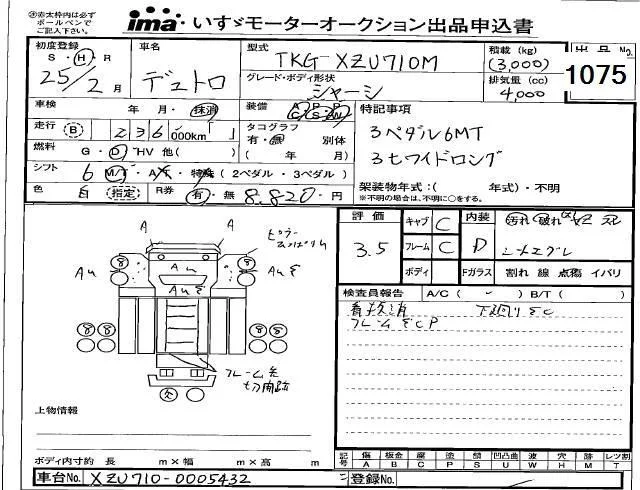 ※赤太枠内は必ず
ボールペンで
ご記入下さい。
ima いすゞモーターオークション出品申込書
初度登録
S・H・R
25年2月
車名
デュトロ
型式
TKG-XZU710M
グレード・ボディ形状
シャーシ
積載 (kg)
(3,000)
排気量 (cc)
4,000
出品No.
1075
車検 年 月・抹消
装備 A/C P/S P/W
特記事項
3ペダル6MT
3tワイドロング
走行 B 236,000km
タコグラフ
有・無 別体
( 年 月)
燃料 G・D・HV 他( )
シフト 6 M/T・A/T・特殊 (2ペダル・3ペダル)
架装物年式:( 年式)・不明
※不明の場合は、不明に○をする。
色 白 指定 R券 有・無 8,820・円
評価 3.5
キャブ C
フレーム C
ボディ
内装 D
汚れ 破れ
Fガラス 割れ 線 点傷 イバリ
検査員報告 A/C ( - ) B/T ( )
下廻りさC
フレームさCP
A
A
AU
AU
AU
AUさ
フレーム先
切開跡
上物情報
ボディ内寸約 長 m×幅 m×高 m
記号 傷 板金 腐 塗 錆 凹凸曲 波 穴 跡 レツ割
A B C P S U W H M T
車台No. XZU710-0005432
登録No. (